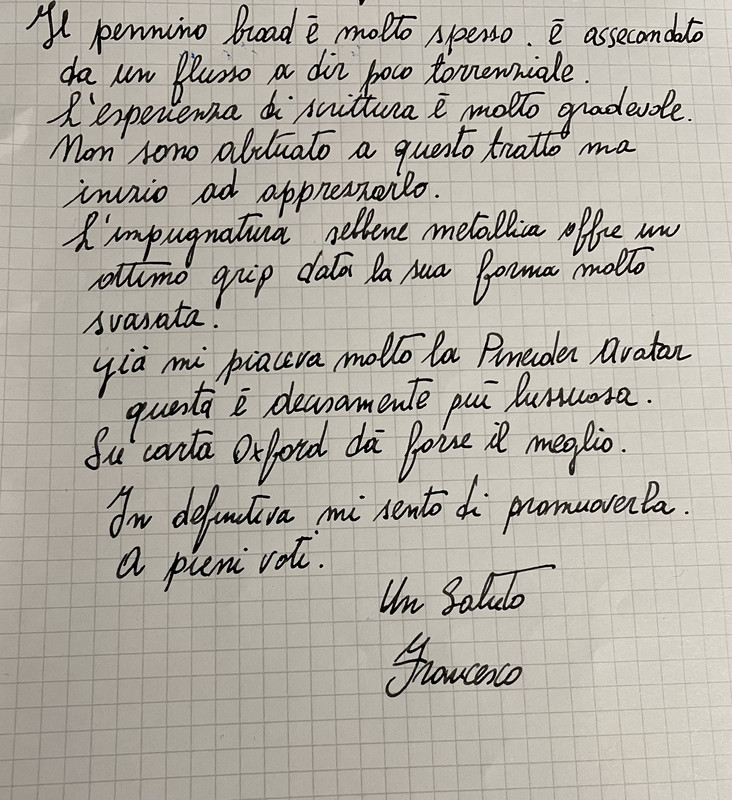 Il pennino broad è molto spesso. è assecondato
da un flusso a dir poco torrenziale.
L'esperienza di scrittura è molto gradevole.
Non sono abituato a questo tratto ma
inizio ad apprezzarlo.
L'impugnatura sebbene metallica offre un
ottimo grip data la sua forma molto
svasata.
già mi piaceva molto la Pineider Avatar
questa è decisamente più lussuosa.
Su carta Oxford dà forse il meglio.
In definitiva mi sento di promuoverla.
A pieni voti.
Un Saluto
Francesco